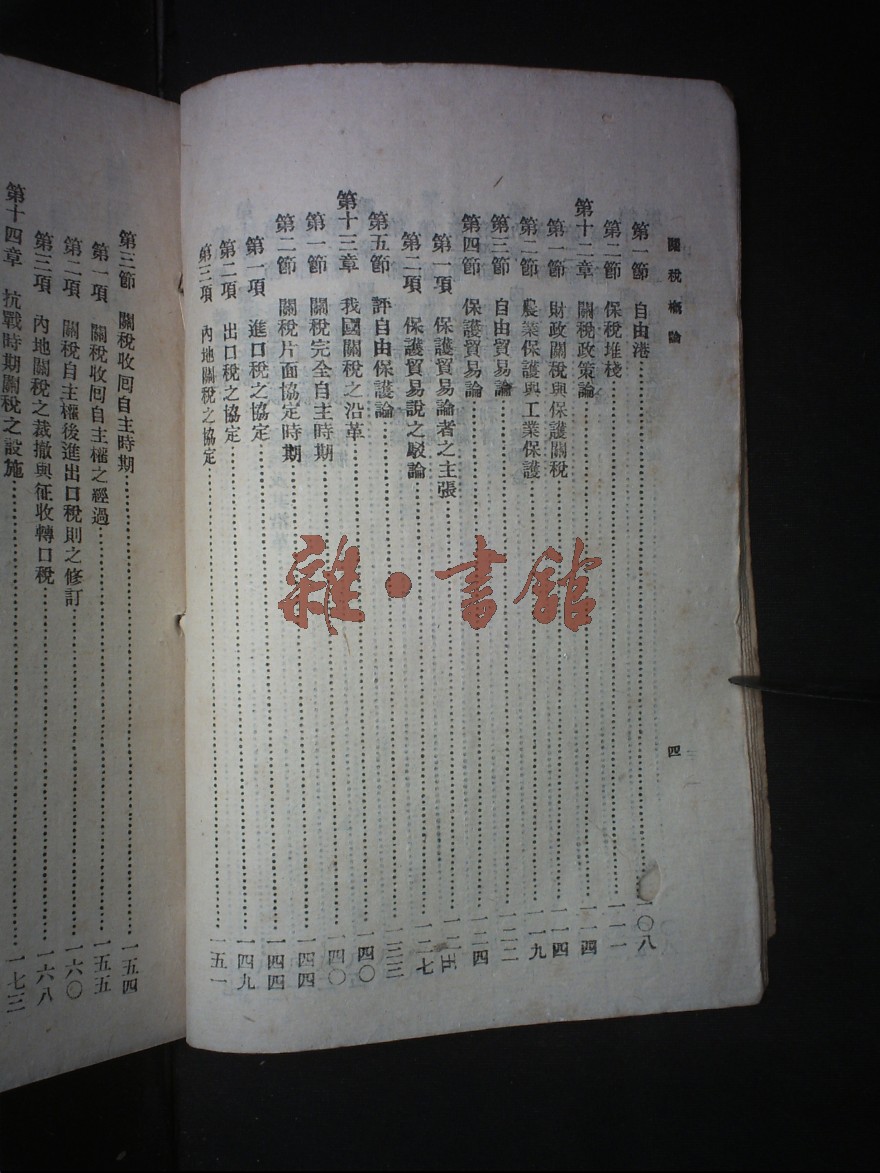 關稅概論
四
第一節 自由港 一〇八
第二節 保稅堆棧 一一一
第十二章 關稅政策論 一一四
第一節 財政關稅與保護關稅 一一四
第二節 農業保護與工業保護 一一九
第三節 自由貿易論 一二二
第四節 保護貿易論 一二四
第一項 保護貿易論者之主張 一二五
第二項 保護貿易說之駁論 一二七
第五節 評自由保護論 一三三
第十三章 我國關稅之沿革 一四〇
第一節 關稅完全自主時期 一四〇
第二節 關稅片面協定時期 一四四
第一項 進口稅之協定 一四四
第二項 出口稅之協定 一四九
第三項 內地關稅之協定 一五一
第三節 關稅收囘自主時期 一五四
第一項 關稅收囘自主權之經過 一五五
第二項 關稅自主權後進出口稅則之修訂 一六〇
第三項 內地關稅之裁撤與征收轉口稅 一六八
第十四章 抗戰時期關稅之設施 一七三
雜·書館